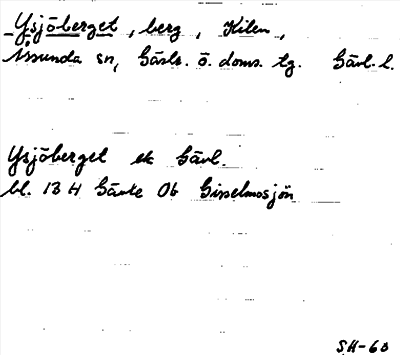 Ysjöberget, berg, Kilen,
Årsunda sn, Gästr. ö. doms. tg. Gävl. l.
Ysjöberget ek Gävl.
bl. 13 H Gävle Ob Gisselmosjön
SH-60